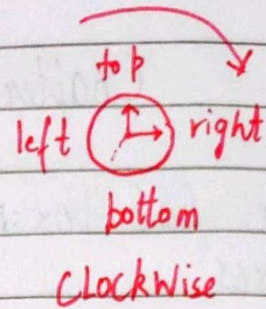 top
left right
bottom
Clockwise